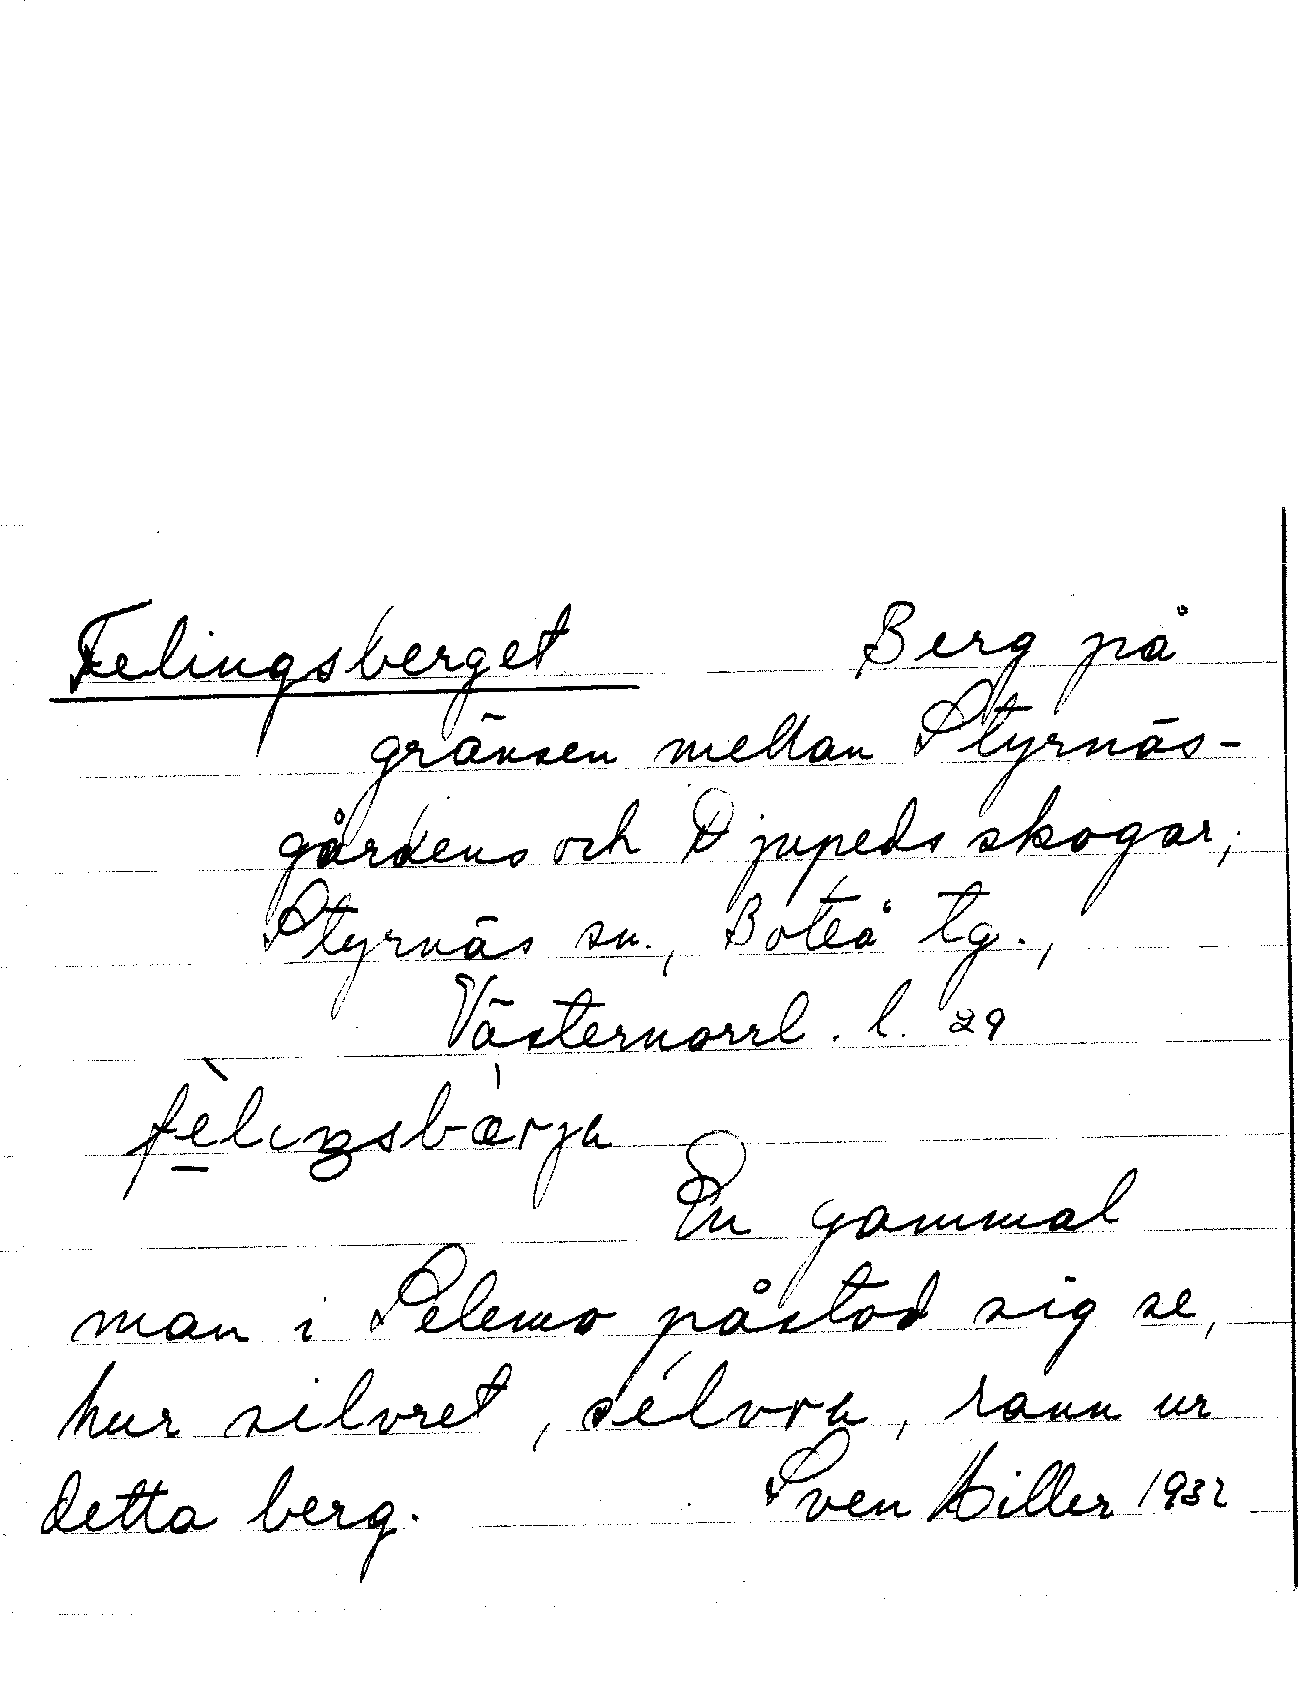 Felingsberget Berg på
gränsen mellan Styrnäs-
gårdens och Djupeds skogar,
Styrnäs sn., Boteå tg.,
Västernorrl. l. 29
fèlıŋsbárja
En gammal
man i Selemo påstod sig se,
hur silvret, sélvra, rann ur
detta berg. Sven Hiller 1932